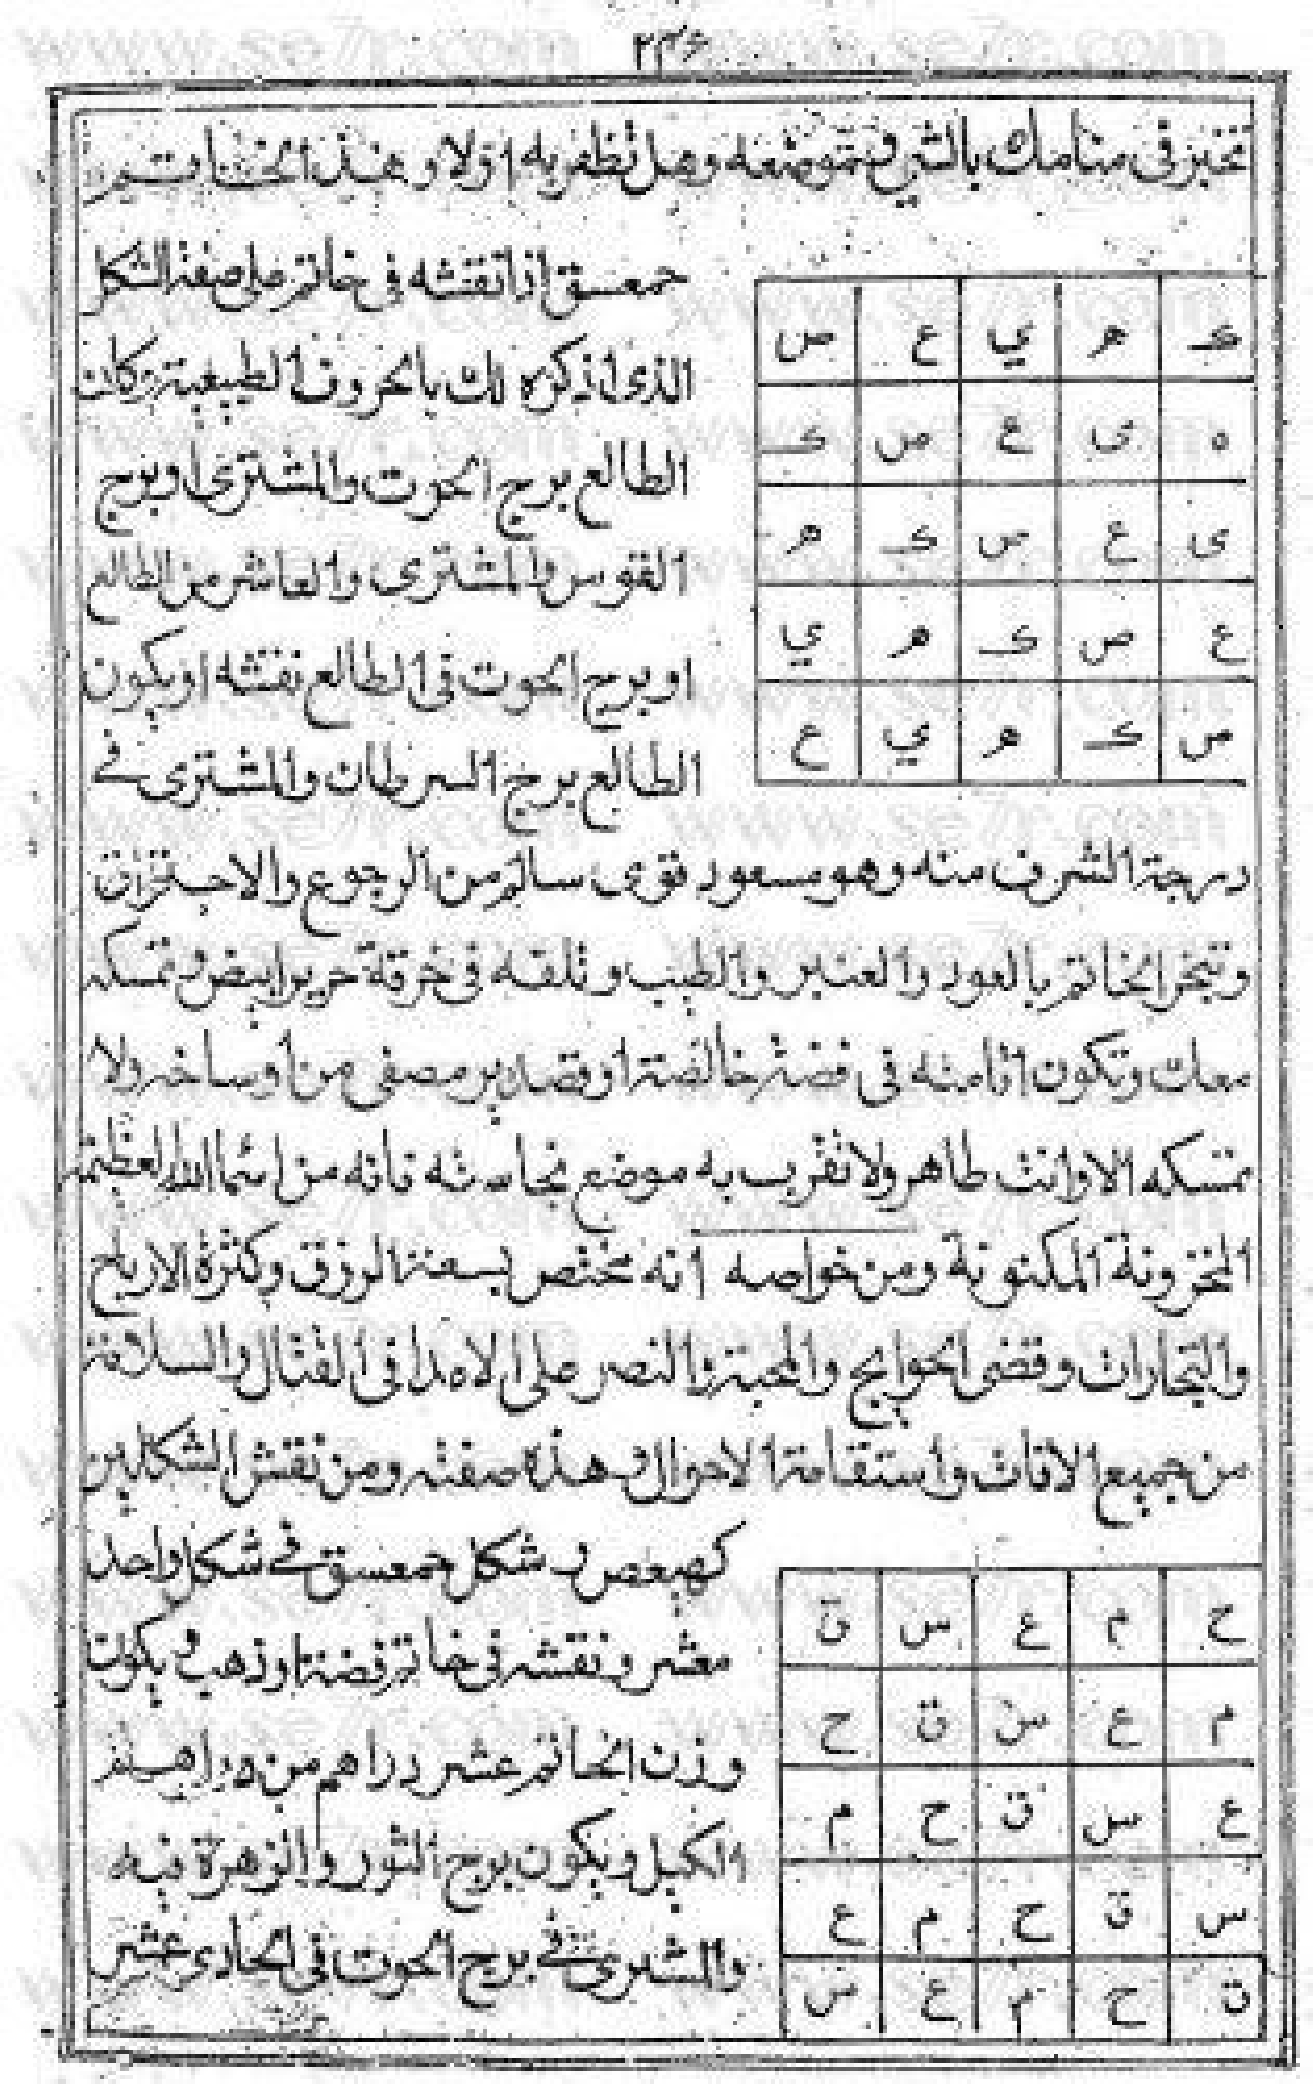 ٢٣٦
تخبر فى منامك بالشى فى موضعه وهل تظفر به اولا و
حمعسق اذا تقشه فى خاتم على صفة الشكل
الذى اذكره لك بالحروف الطبيعية وكان
الطالع برج الحوت والمشترى او برج
القوس والمشترى والعاشر من الطالع
او برج الحوت فى الطالع نقشه او يكون
الطالع برج السرطان والمشترى فے
ك ه ي ع ص
ه ى ع ص ك
ى ع ص ك ه
ع ص ك ه ي
ص ك ه ي ع
درجة الشرف منه وهو مسعود قوى سالم من الرجوع والاحتراق
وتبخر الخاتم بالعود والعنبر والطيب وتلفه فى خرقة حرير ابيض وتمسكه
معك وتكون اقامنه فى فضة خالصة او قصدير مصفى من اوساخه ولا
تمسكه الا وانت طاهر ولا تقرب به موضع نجاسة فانه من اسما الله العظيمة
المخزونة المكنونة ومن خواصه انه مختص بسعة الرزق وكثرة الارباح
والتجارات وقضى الحوايج والمحبة والنصر على الاعدا فى القتال والسلامة
من جميع الافات واستقامة الاحوال وهذه صفته ومن نقش الشكلين
كهيعص وشكل حمعسق فے شكل واحد
معشر ونقشه فى خاتم فضة او ذهب ويكون
وزن الخاتم عشر دراهم من دراهم
الكيل ويكون برج الثور والزهرة فيه
والمشترى فے برج الحوت فى الحادى عشر
ح م ع س ق
م ع س ق ح
ع س ق ح م
س ق ح م ع
ق ح م ع س